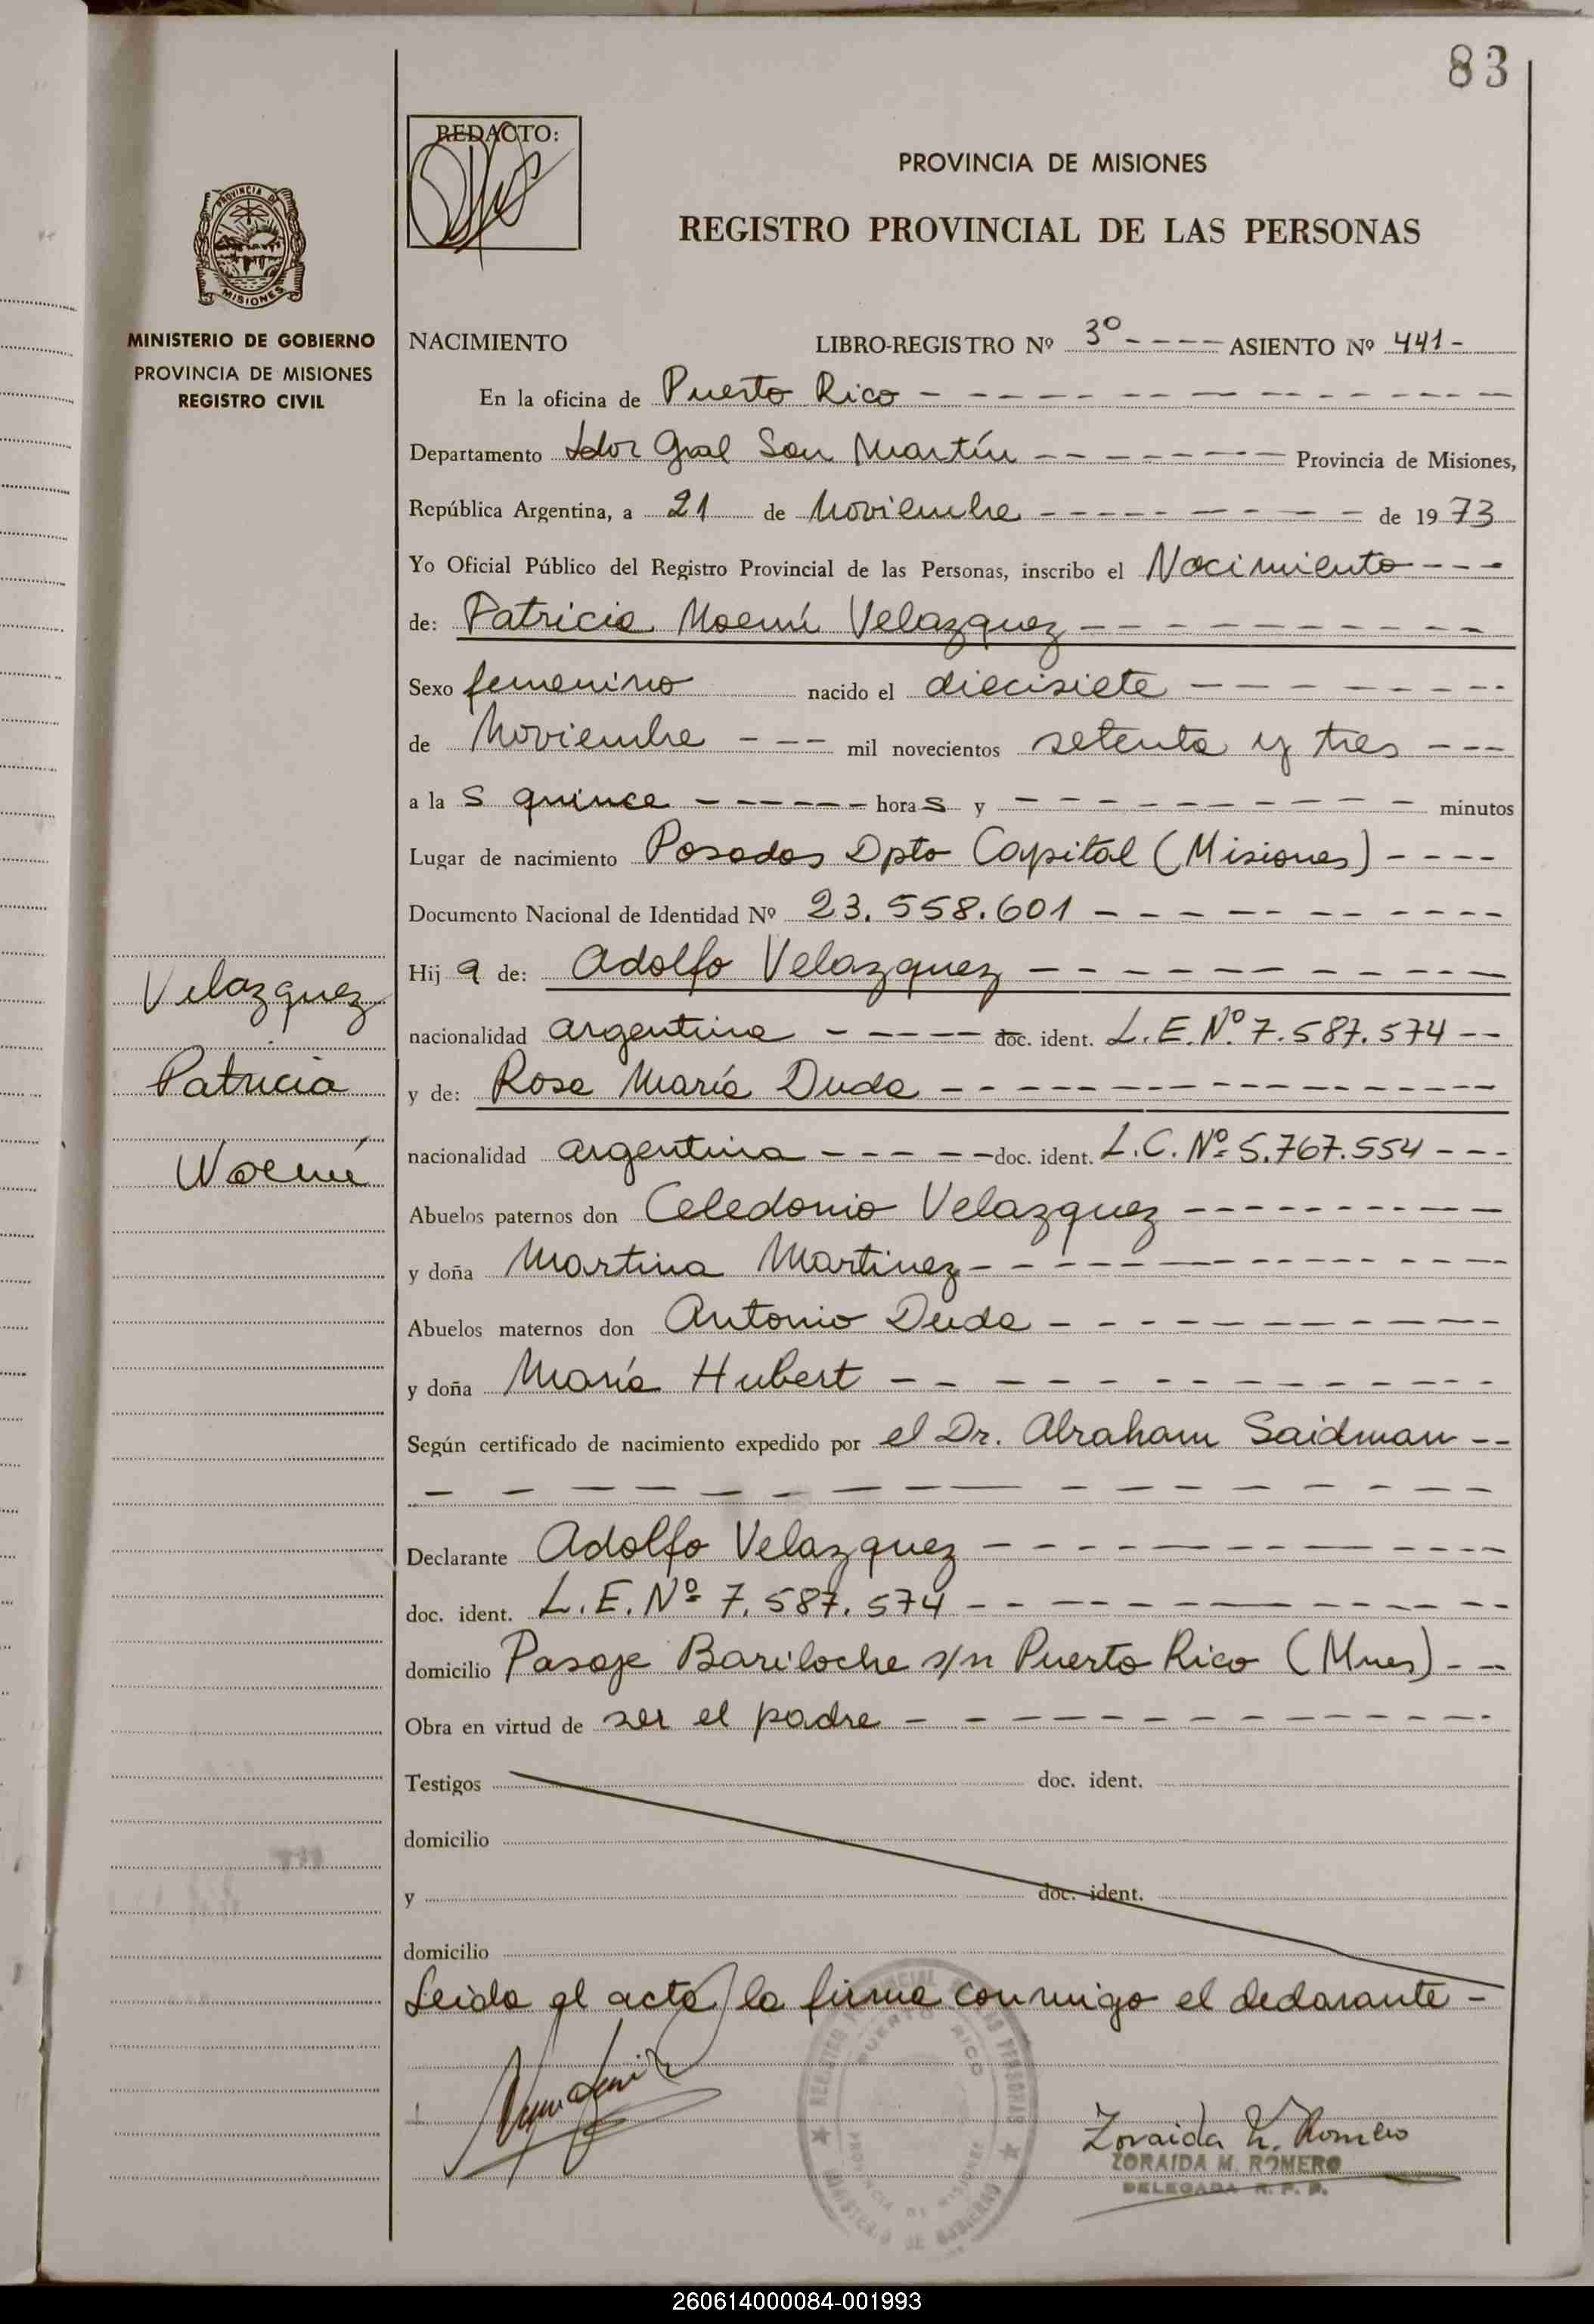 83
REDACTO:
PROVINCIA DE MISIONES
REGISTRO PROVINCIAL DE LAS PERSONAS
PROVINCIA DE
MISIONES
MINISTERIO DE GOBIERNO
PROVINCIA DE MISIONES
REGISTRO CIVIL
NACIMIENTO LIBRO-REGISTRO Nº 3º ---- ASIENTO Nº 441-
En la oficina de Puerto Rico
Departamento Ldor Gral San Martín Provincia de Misiones,
República Argentina, a 21 de Noviembre de 1973
Yo Oficial Público del Registro Provincial de las Personas, inscribo el Nacimiento
de: Patricia Noemí Velazquez
Sexo femenino nacido el diecisiete
de Noviembre --- mil novecientos setenta y tres ---
a la s quince horas y minutos
Lugar de nacimiento Posadas Dpto Capital (Misiones) ----
Documento Nacional de Identidad Nº 23.558.601
Hij a de: Adolfo Velazquez
nacionalidad argentina doc. ident. L.E.Nº 7.587.574 --
y de: Rosa María Duda
nacionalidad argentina doc. ident. L.C. Nº 5.767.554 ---
Abuelos paternos don Celedonio Velazquez
y doña Martina Martinez
Abuelos maternos don Antonio Duda
y doña María Hubert
Según certificado de nacimiento expedido por el Dr. Abraham Saidman --
Declarante Adolfo Velazquez
doc. ident. L.E.Nº 7.587.574
domicilio Pasaje Bariloche s/n Puerto Rico (Mnes) --
Obra en virtud de ser el padre
Testigos doc. ident.
domicilio
y doc. ident.
domicilio
Leida el acta, la firma conmigo el declarante -
Velazquez
Patricia
Noemí
REGISTRO PROVINCIAL DE LAS PERSONAS
PUERTO RICO
PROVINCIA DE MISIONES
MINISTERIO DE GOBIERNO
Zoraida M. Romero
ZORAIDA M. ROMERO
DELEGADA R. P. P.
260614000084-001993